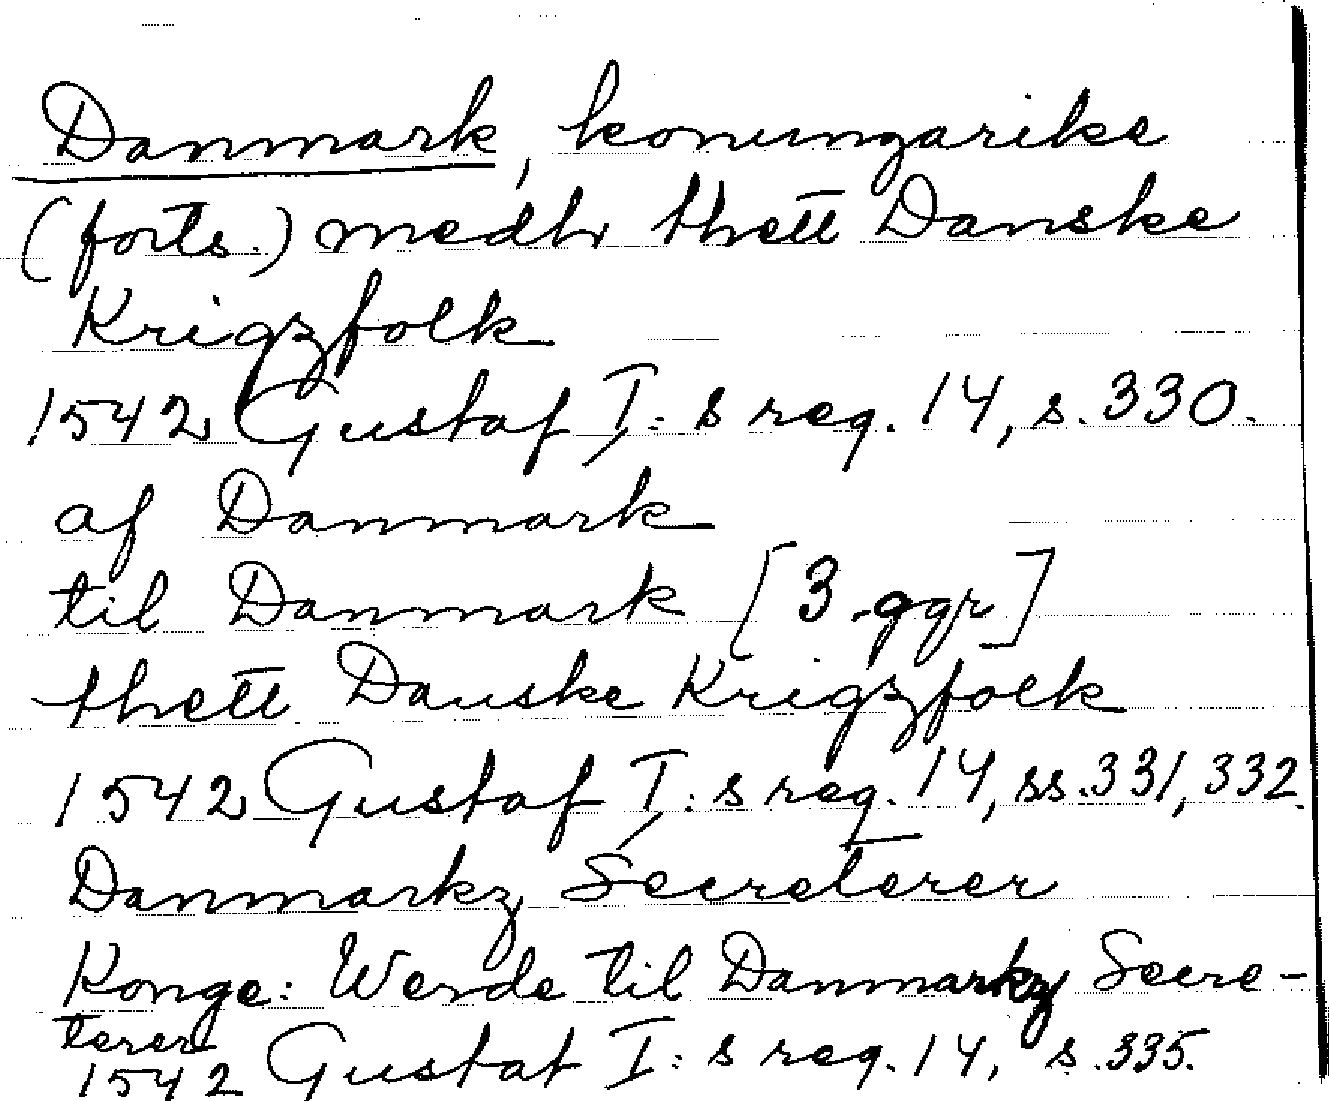 Danmark, konungarike
(forts.) medh thett Danske
Krigzfolk
1542 Gustaf I:s reg. 14, s. 330.
af Danmark
til Danmark [3 ggr]
thett Danske Krigzfolk
1542 Gustaf I:s reg. 14, ss. 331, 332.
Danmarkz Secreterer
Konge: Werde til Danmarkz Secre-
terer
1542 Gustaf I:s reg. 14, s. 335.